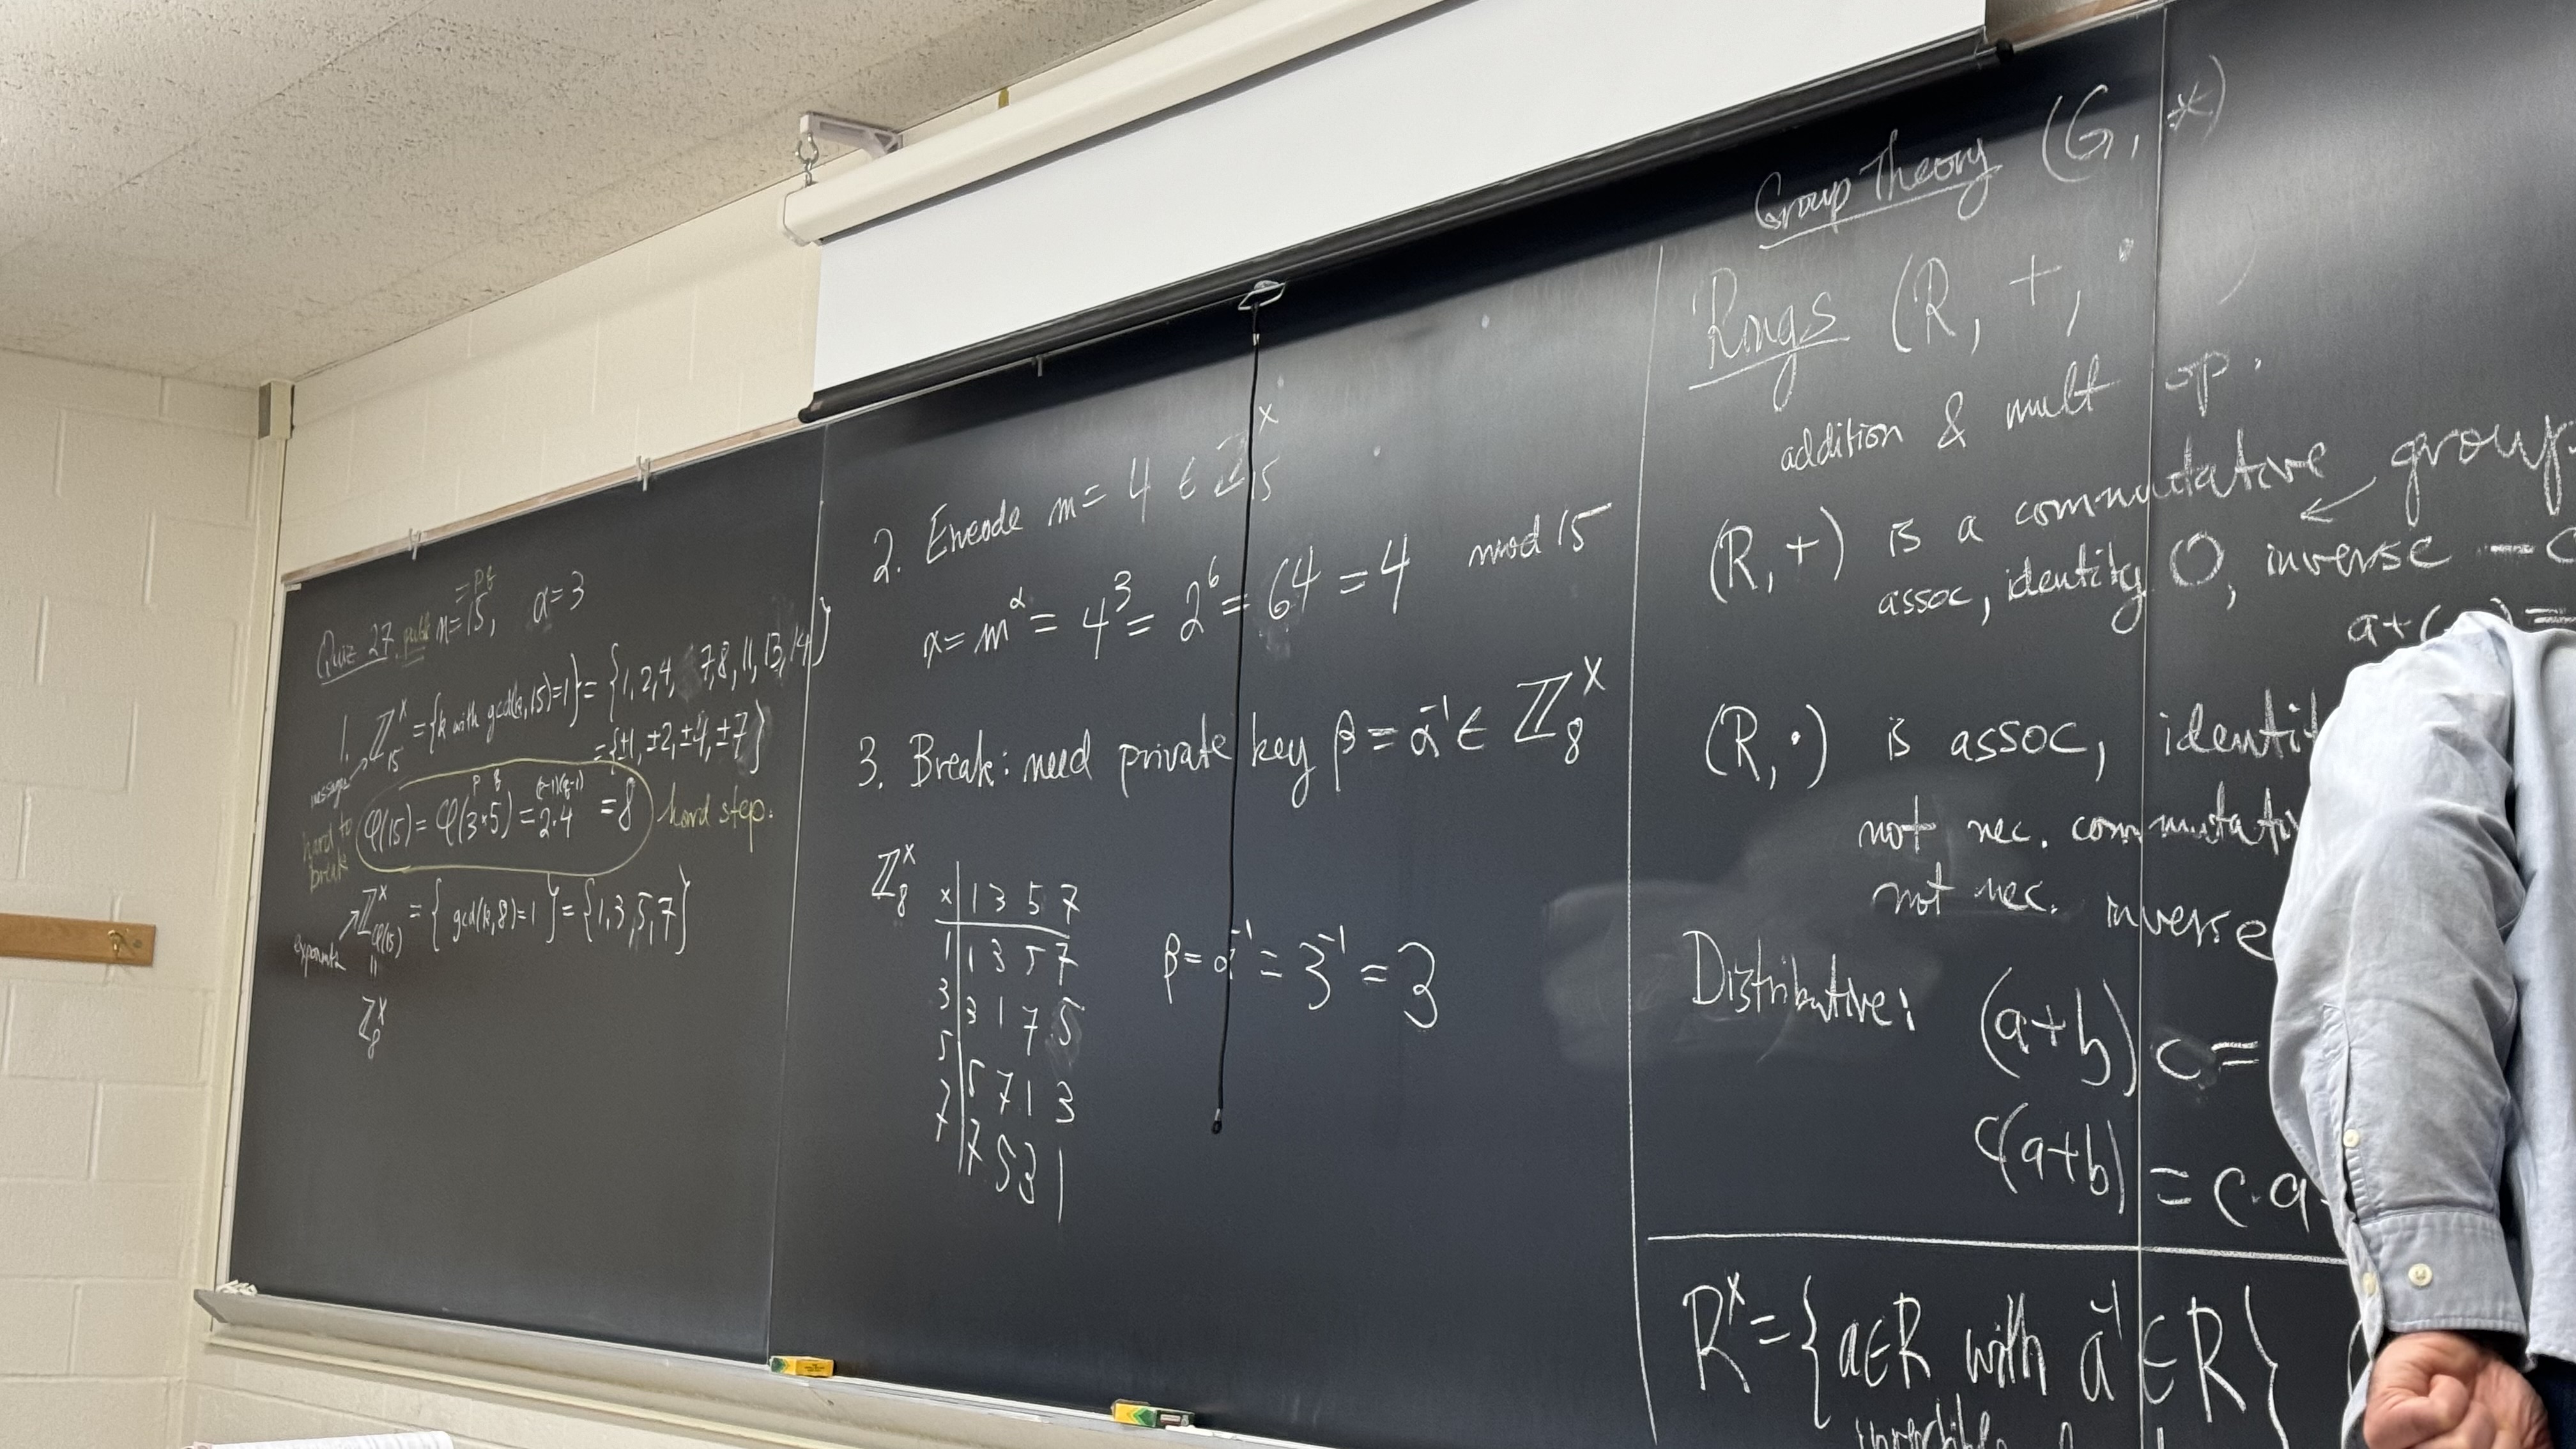 Quiz 27. public n=15, α=3
=pq
1. ℤ₁₅ˣ = {k with gcd(k,15)=1} = {1,2,4, 7,8,11,13,14}
= {±1, ±2, ±4, ±7}
messages
p q (p-1)(q-1)
φ(15) = φ(3·5) = 2·4 = 8 hard step.
hard to
break
ℤ_φ(15)ˣ = { gcd(k,8)=1 } = {1,3,5,7}
exponents
=
ℤ₈ˣ
2. Encode m = 4 ∈ ℤ₁₅ˣ
x = m^α = 4³ = 2⁶ = 64 = 4 mod 15
3. Break: need private key β = α⁻¹ ∈ ℤ₈ˣ
ℤ₈ˣ
× | 1 3 5 7
1 | 1 3 5 7
3 | 3 1 7 5
5 | 5 7 1 3
7 | 7 5 3 1
β = α⁻¹ = 3⁻¹ = 3
Group Theory (G, *)
Rings (R, +, ·
addition & mult op.
(R, +) is a commutative group
assoc, identity 0, inverse -
a+(
(R, ·) is assoc,
not nec.
not nec. inverse
Distributive: (a+b) c =
c(a+b) = c·a
Rˣ = {a∈R with a⁻¹ ∈ R}